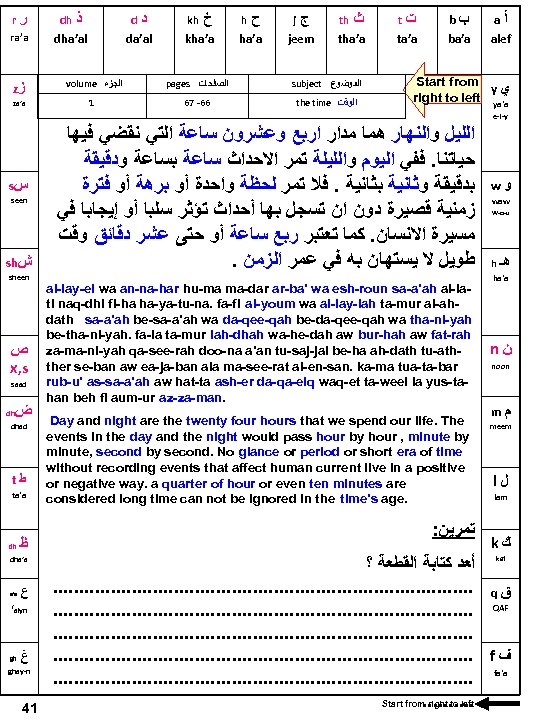 r ر dh ذ d د kh خ h ح J ج th ث t ت b ب a أ
ra'a dha'al da'al kha'a ha'a jeem tha'a ta'a ba'a alef
z ز
za'a
volume الجزء pages الصفحات subject الموضوع
1 67 -66 the time الوقت
Start from
right to left
y ي
ya'a
e-i-y
الليل والنهار هما مدار اربع وعشرون ساعة التي نقضي فيها
حياتنا. ففي اليوم والليلة تمر الاحداث ساعة بساعة ودقيقة
بدقيقة وثانية بثانية . فلا تمر لحظة واحدة أو برهة أو فترة
زمنية قصيرة دون ان تسجل بها أحداث تؤثر سلبا أو إيجابا في
مسيرة الانسان. كما تعتبر ربع ساعة أو حتى عشر دقائق وقت
طويل لا يستهان به في عمر الزمن .
s س
seen
w و
waw
w-o-u
sh ش
sheen
h هـ
ha'a
al-lay-el wa an-na-har hu-ma ma-dar ar-ba' wa esh-roun sa-a'ah al-la-
ti naq-dhi fi-ha ha-ya-tu-na. fa-fi al-youm wa al-lay-lah ta-mur al-ah-
dath sa-a'ah be-sa-a'ah wa da-qee-qah be-da-qee-qah wa tha-ni-yah
be-tha-ni-yah. fa-la ta-mur lah-dhah wa-he-dah aw bur-hah aw fat-rah
za-ma-ni-yah qa-see-rah doo-na a'an tu-saj-jal be-ha ah-dath tu-ath-
ther se-ban aw ea-ja-ban ala ma-see-rat al-en-san. ka-ma tua-ta-bar
rub-u' as-sa-a'ah aw hat-ta ash-er da-qa-eiq waq-et ta-weel la yus-ta-
han beh fi aum-ur az-za-man.
ص
x,s
saad
n ن
noon
dh ض
dhad
m م
meem
Day and night are the twenty four hours that we spend our life. The
events in the day and the night would pass hour by hour , minute by
minute, second by second. No glance or period or short era of time
without recording events that affect human current live in a positive
or negative way. a quarter of hour or even ten minutes are
considered long time can not be ignored in the time's age.
t ط
ta'a
l ل
lam
تمرين:
أعد كتابة القطعة ؟
dh ظ
dha'a
k ك
kaf
ع
'aiyn
q ق
QAF
gh غ
ghay-n
f ف
fa'a
41
Start from right to left